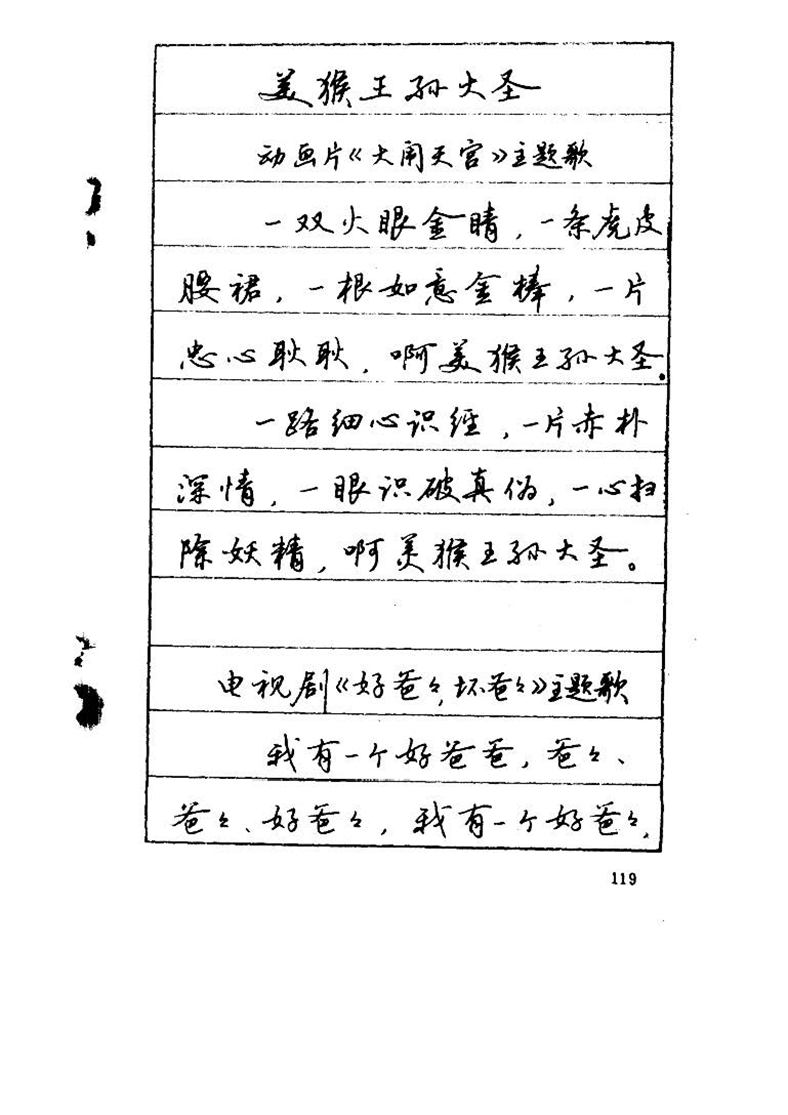 美猴王孙大圣
动画片《大闹天宫》主题歌
一双火眼金睛，一条虎皮
腰裙，一根如意金棒，一片
忠心耿耿，啊美猴王孙大圣。
一路细心识经，一片赤朴
深情，一眼识破真伪，一心扫
除妖精，啊美猴王孙大圣。
电视剧《好爸々，坏爸々》主题歌
我有一个好爸爸，爸々、
爸々、好爸々，我有一个好爸々，
119